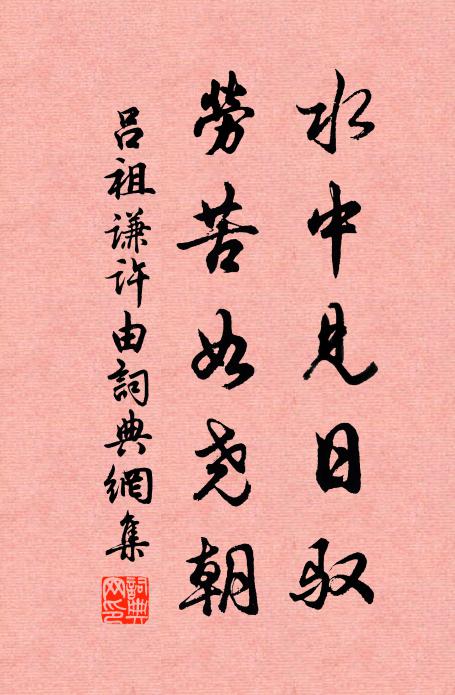 水中見日馭
勞苦如尧朝
吕祖谦许由詞典網集
詞典網印